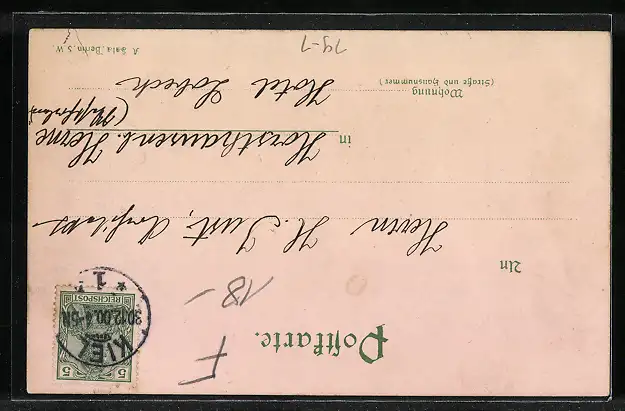 Postkarte.
5 5
REICHSPOST
KIEL
30.12.00.4-5N.
* 1
F
18-
An
Herrn H. Just, Architekt
in Horsthausen b. Herne
(Westfalen)
Wohnung
(Straße und Hausnummer)
Hotel
A Sala, Berlin S.W.
19-1